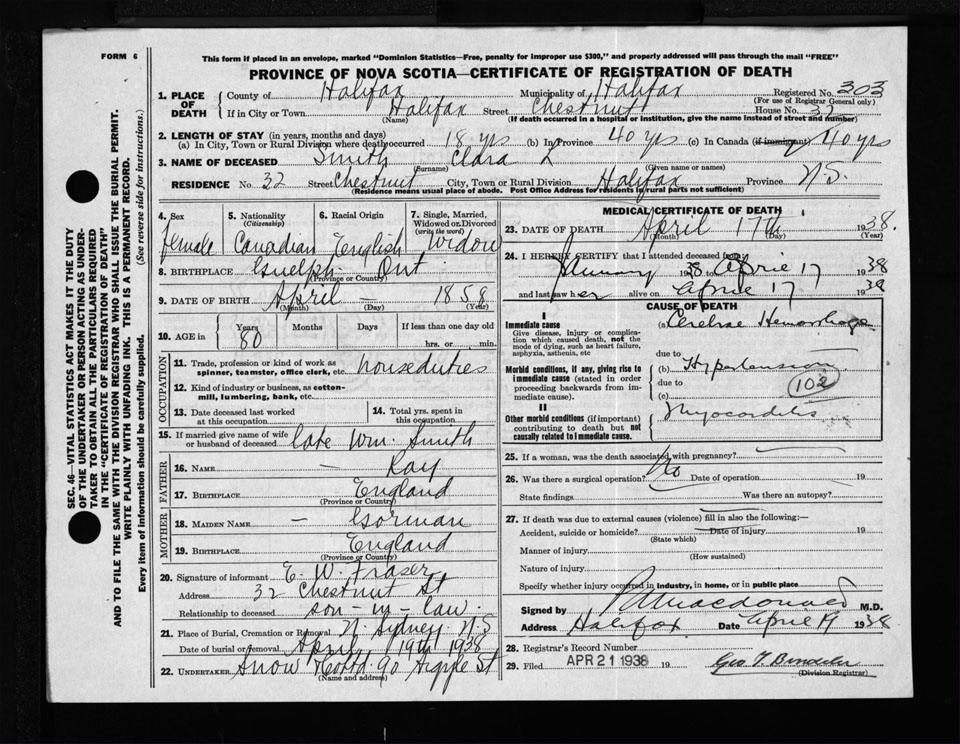 FORM 6
This form if placed in an envelope, marked "Dominion Statistics—Free, penalty for improper use $300," and properly addressed will pass through the mail "FREE"
PROVINCE OF NOVA SCOTIA—CERTIFICATE OF REGISTRATION OF DEATH
SEC. 46—VITAL STATISTICS ACT MAKES IT THE DUTY
OF THE UNDERTAKER OR PERSON ACTING AS UNDER-
TAKER TO OBTAIN ALL THE PARTICULARS REQUIRED
IN THE "CERTIFICATE OF REGISTRATION OF DEATH"
AND TO FILE THE SAME WITH THE DIVISION REGISTRAR WHO SHALL ISSUE THE BURIAL PERMIT.
WRITE PLAINLY WITH UNFADING INK. THIS IS A PERMANENT RECORD.
Every item of information should be carefully supplied. (See reverse side for instructions.)
1. PLACE OF DEATH County of Halifax Municipality of Halifax Registered No. 303
(For use of Registrar General only)
If in City or Town Halifax Street Chestnut House No. 32
(Name) (If death occurred in a hospital or institution, give the name instead of street and number)
2. LENGTH OF STAY (in years, months and days)
(a) In City, Town or Rural Division where death occurred 18 yrs (b) In Province 40 yrs (c) In Canada (if immigrant) 40 yrs
3. NAME OF DECEASED Smith Clara L
(Surname) (Given name or names)
RESIDENCE No. 32 Street Chestnut City, Town or Rural Division Halifax Province N.S.
(Residence means usual place of abode. Post Office Address for residents in rural parts not sufficient)
4. Sex 5. Nationality (Citizenship) 6. Racial Origin 7. Single, Married, Widowed or Divorced (write the word)
female Canadian English Widow
8. BIRTHPLACE Guelph Ont
(Province or Country)
9. DATE OF BIRTH April — 1858
(Month) (Day) (Year)
10. AGE in Years Months Days If less than one day old
80 hrs. or min.
OCCUPATION
11. Trade, profession or kind of work as spinner, teamster, office clerk, etc. houseduties
12. Kind of industry or business, as cotton-mill, lumbering, bank, etc.
13. Date deceased last worked at this occupation
14. Total yrs. spent in this occupation
15. If married give name of wife or husband of deceased late Wm. Smith
FATHER
16. NAME — Ray
17. BIRTHPLACE England
(Province or Country)
MOTHER
18. MAIDEN NAME — Gorman
19. BIRTHPLACE England
(Province or Country)
20. Signature of informant E. W. Fraser
Address 32 Chestnut St
Relationship to deceased son-in-law.
21. Place of Burial, Cremation or Removal N. Sydney N.S
Date of burial or removal April 19th 1938
22. UNDERTAKER Snow 90 Argyle St
(Name and address)
MEDICAL CERTIFICATE OF DEATH
23. DATE OF DEATH April 17th 1938.
(Month) (Day) (Year)
24. I HEREBY CERTIFY that I attended deceased from
January 1938 to April 17 1938
and last saw her alive on April 17 1938
CAUSE OF DEATH
I
Immediate cause
Give disease, injury or complication which caused death, not the mode of dying, such as heart failure, asphyxia, asthenia, etc
(a) Cerebral Hemorrhage
due to
Morbid conditions, if any, giving rise to immediate cause (stated in order proceeding backwards from immediate cause).
(b) Hypertension
due to 102
(c)
II
Other morbid conditions (if important) contributing to death but not causally related to immediate cause.
Myocarditis
25. If a woman, was the death associated with pregnancy?
26. Was there a surgical operation? No Date of operation 19
State findings Was there an autopsy?
27. If death was due to external causes (violence) fill in also the following:—
Accident, suicide or homicide? Date of injury 19
(State which)
Manner of injury
(How sustained)
Nature of injury
Specify whether injury occurred in industry, in home, or in public place
Signed by Macdonald M.D.
Address Halifax Date April 19 1938
28. Registrar's Record Number
29. Filed APR 21 1938 19
(Division Registrar)